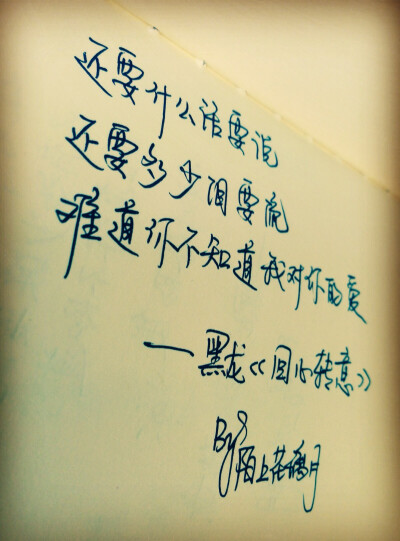 还要什么话要说
还要多少泪要流
难道你不知道我对你的爱
——黑龙《回心转意》
By 陌上花隅月